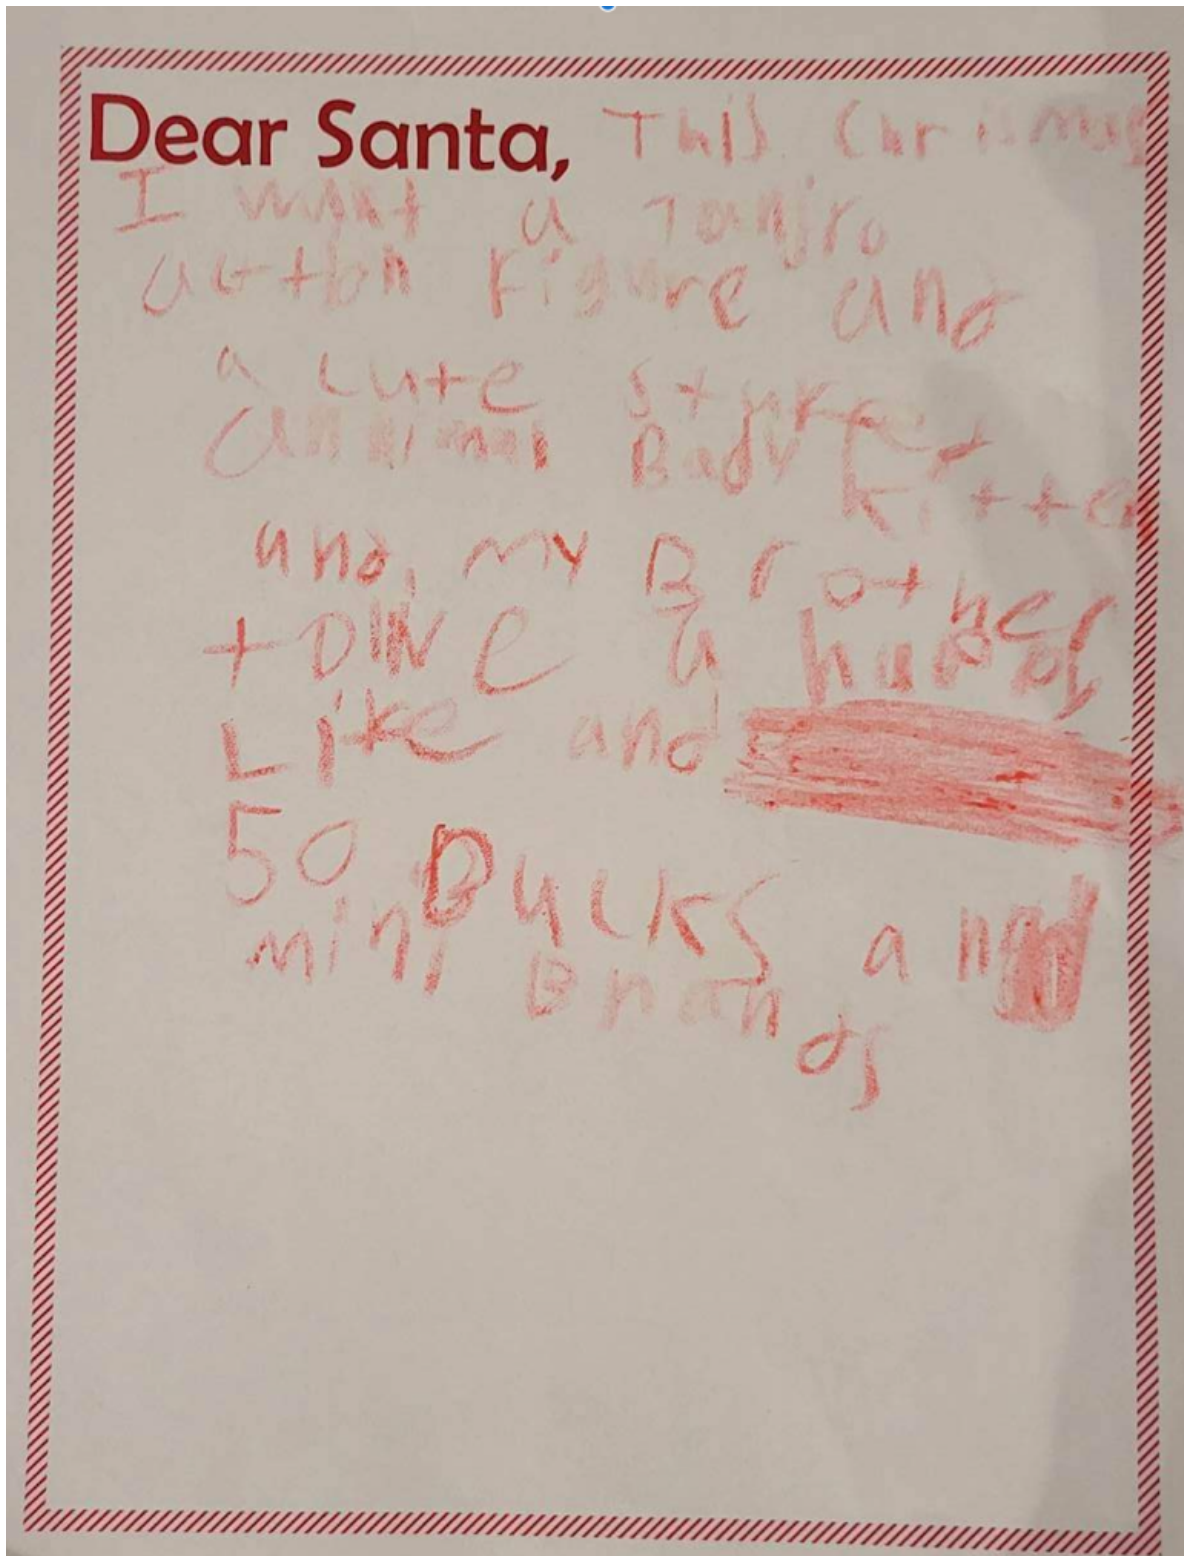 Dear Santa, This Chrismas
I want a Tanjro
action Figure and
a cute stufed
annimal Bady kitten
and, my Brother
to
Like and
50 Bucks and
mini Brands